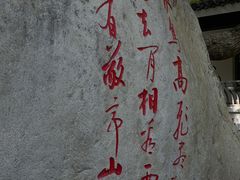 鸟高飞尽
去闲相看两
有敬亭山